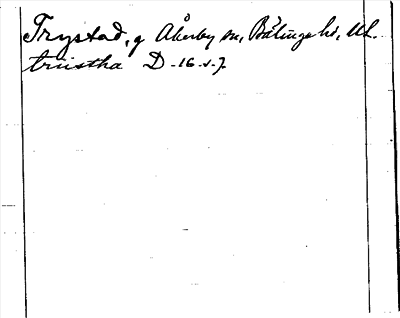 Trystad, g Åkerby sn, Bälinge hd, Upl.
triistha D-16.s.7.